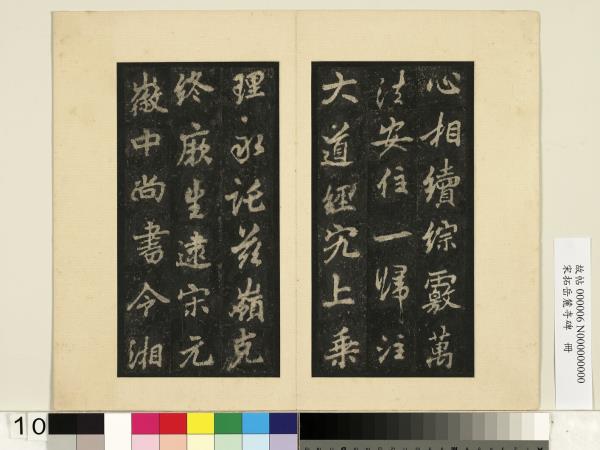 心相續綜覈萬
法安住一歸注
大道經究上乘
理永託茲嶺克
終厥生逮宋元
徽中尚書令湘
故帖 000006 N000000000
宋拓岳麓寺碑 冊
10